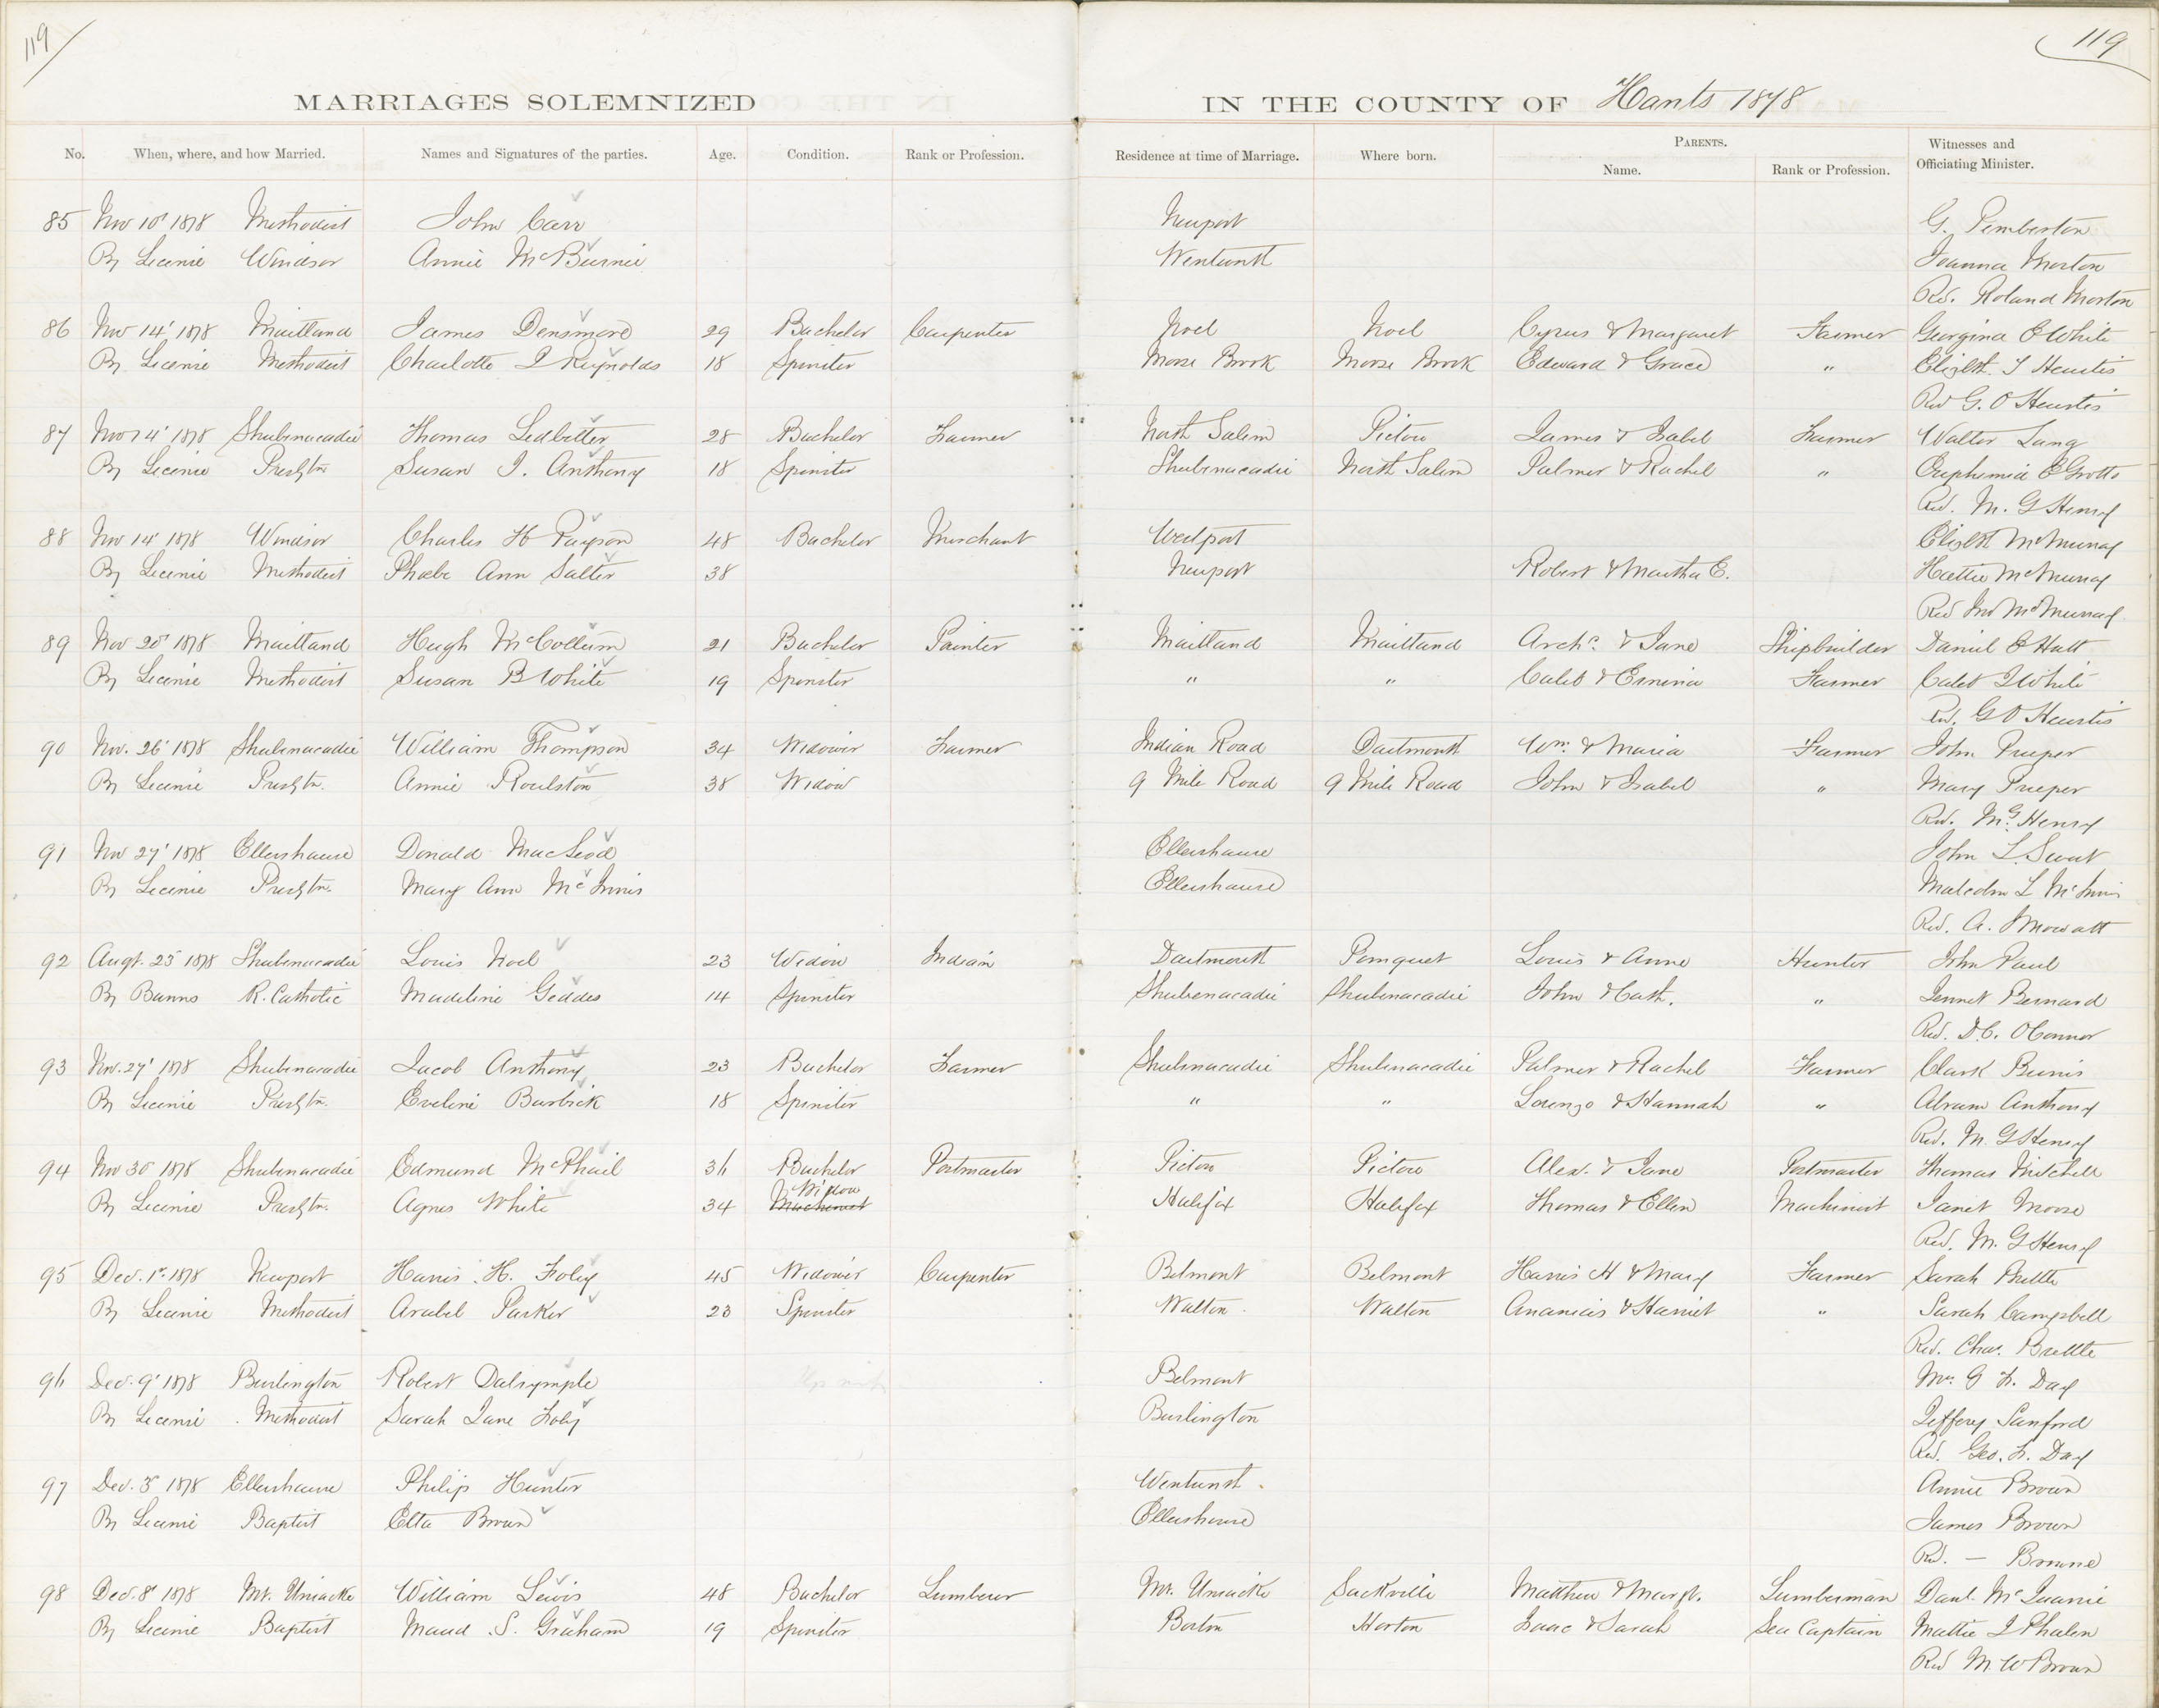 119
119
MARRIAGES SOLEMNIZED IN THE COUNTY OF Hants 1878
No. When, where, and how Married. Names and Signatures of the parties. Age. Condition. Rank or Profession. Residence at time of Marriage. Where born. PARENTS. Name. Rank or Profession. Witnesses and Officiating Minister.
85 Nov 10' 1878 Methodist John Carr Newport G. Pemberton
By Licence Windsor Annie McBurnie Wentworth Joanna Morton
Rev. Roland Morton
86 Nov 14' 1878 Maitland James Densmore 29 Bachelor Carpenter Noel Noel Cyrus & Margaret Farmer Georgina E White
By Licence Methodist Charlotte I Reynolds 18 Spinster Moose Brook Moose Brook Edward & Grace " Elizbth. T Heustis
Rev G. O Heustis
87 Nov 14' 1878 Shubenacadie Thomas Ledbetter 28 Bachelor Farmer North Salem Pictou James & Isabel Farmer Walter Lang
By Licence Presbtn Susan J. Anthony 18 Spinster Shubenacadie North Salem Palmer & Rachel " Euphemia E Grotto
Rev. M. G Henry
88 Nov 14' 1878 Windsor Charles H Payson 48 Bachelor Merchant Westport Elizbth McMurray
By Licence Methodist Phoebe Ann Salter 38 Newport Robert & Martha E. Hattie McMurray
Rev Jno McMurray
89 Nov 20' 1878 Maitland Hugh McCollum 21 Bachelor Painter Maitland Maitland Archd. & Jane Shipbuilder Daniel E Hutt
By Licence Methodist Susan B White 19 Spinster " " Caleb & Ermina Farmer Caleb I White
Rev. G O Heustis
90 Nov. 26' 1878 Shubenacadie William Thompson 34 Widower Farmer Indian Road Dartmouth Wm. & Maria Farmer John Preeper
By Licence Presbtn. Annie Roulston 38 Widow 9 Mile Road 9 Mile Road John & Isabel " Mary Preeper
Rev. M. G Henry
91 Nov 27' 1878 Ellershause Donald MacLeod Ellershause John L. Sweet
By Licence Presbtn. Mary Ann McInnis Ellershause Malcolm L McInnis
Rev. A. J Mowatt
92 Augt. 25 1878 Shubenacadie Louis Noel 23 Widow Indian Dartmouth Pomquet Louis & Anne Hunter John Paul
By Banns R. Catholic Madeline Geddes 14 Spinster Shubenacadie Shubenacadie John & Cath. " Jennet Bernard
Rev. D. C. OConnor
93 Nov. 27' 1878 Shubenacadie Jacob Anthony 23 Bachelor Farmer Shubenacadie Shubenacadie Palmer & Rachel Farmer Clark Burris
By Licence Presbtn. Eveline Burbick 18 Spinster " " Lorenzo & Hannah " Abram Anthony
Rev. M. G Henry
94 Nov 30' 1878 Shubenacadie Edmund McPhail 36 Bachelor Postmaster Pictou Pictou Alex. & Jane Postmaster Thomas Mitchell
By Licence Presbtn. Agnes White 34 Widow Machinist Halifax Halifax Thomas & Ellen Machinist Janet Moore
Rev. M. G Henry
95 Dec. 1st. 1878 Newport Harris H. Foley 45 Widower Carpenter Belmont Belmont Harris H & Mary Farmer Sarah Brettle
By Licence Methodist Arabel Parker 23 Spinster Walton Walton Ananias & Harriet " Sarah Campbell
Rev. Chas. Brettle
96 Dec. 9' 1878 Burlington Robert Dalrymple Belmont Mrs. G F. Day
By Licence Methodist Sarah Jane Foley Burlington Jeffery Sanford
Rev. Geo. F. Day
97 Dec. 3' 1878 Ellershause Philip Hunter Wentworth Annie Brown
By Licence Baptist Etta Brown Ellershouse James Brown
Rev. — Browne
98 Dec. 8' 1878 Mt. Uniacke William Lewis 48 Bachelor Lumberer Mt. Uniacke Sackville Matthew & Margt. Lumberman Danl. McQuarrie
By Licence Baptist Maud S. Graham 19 Spinster Boston Horton Isaac & Sarah Sea Captain Mattie J Phalen
Rev M. W Brown